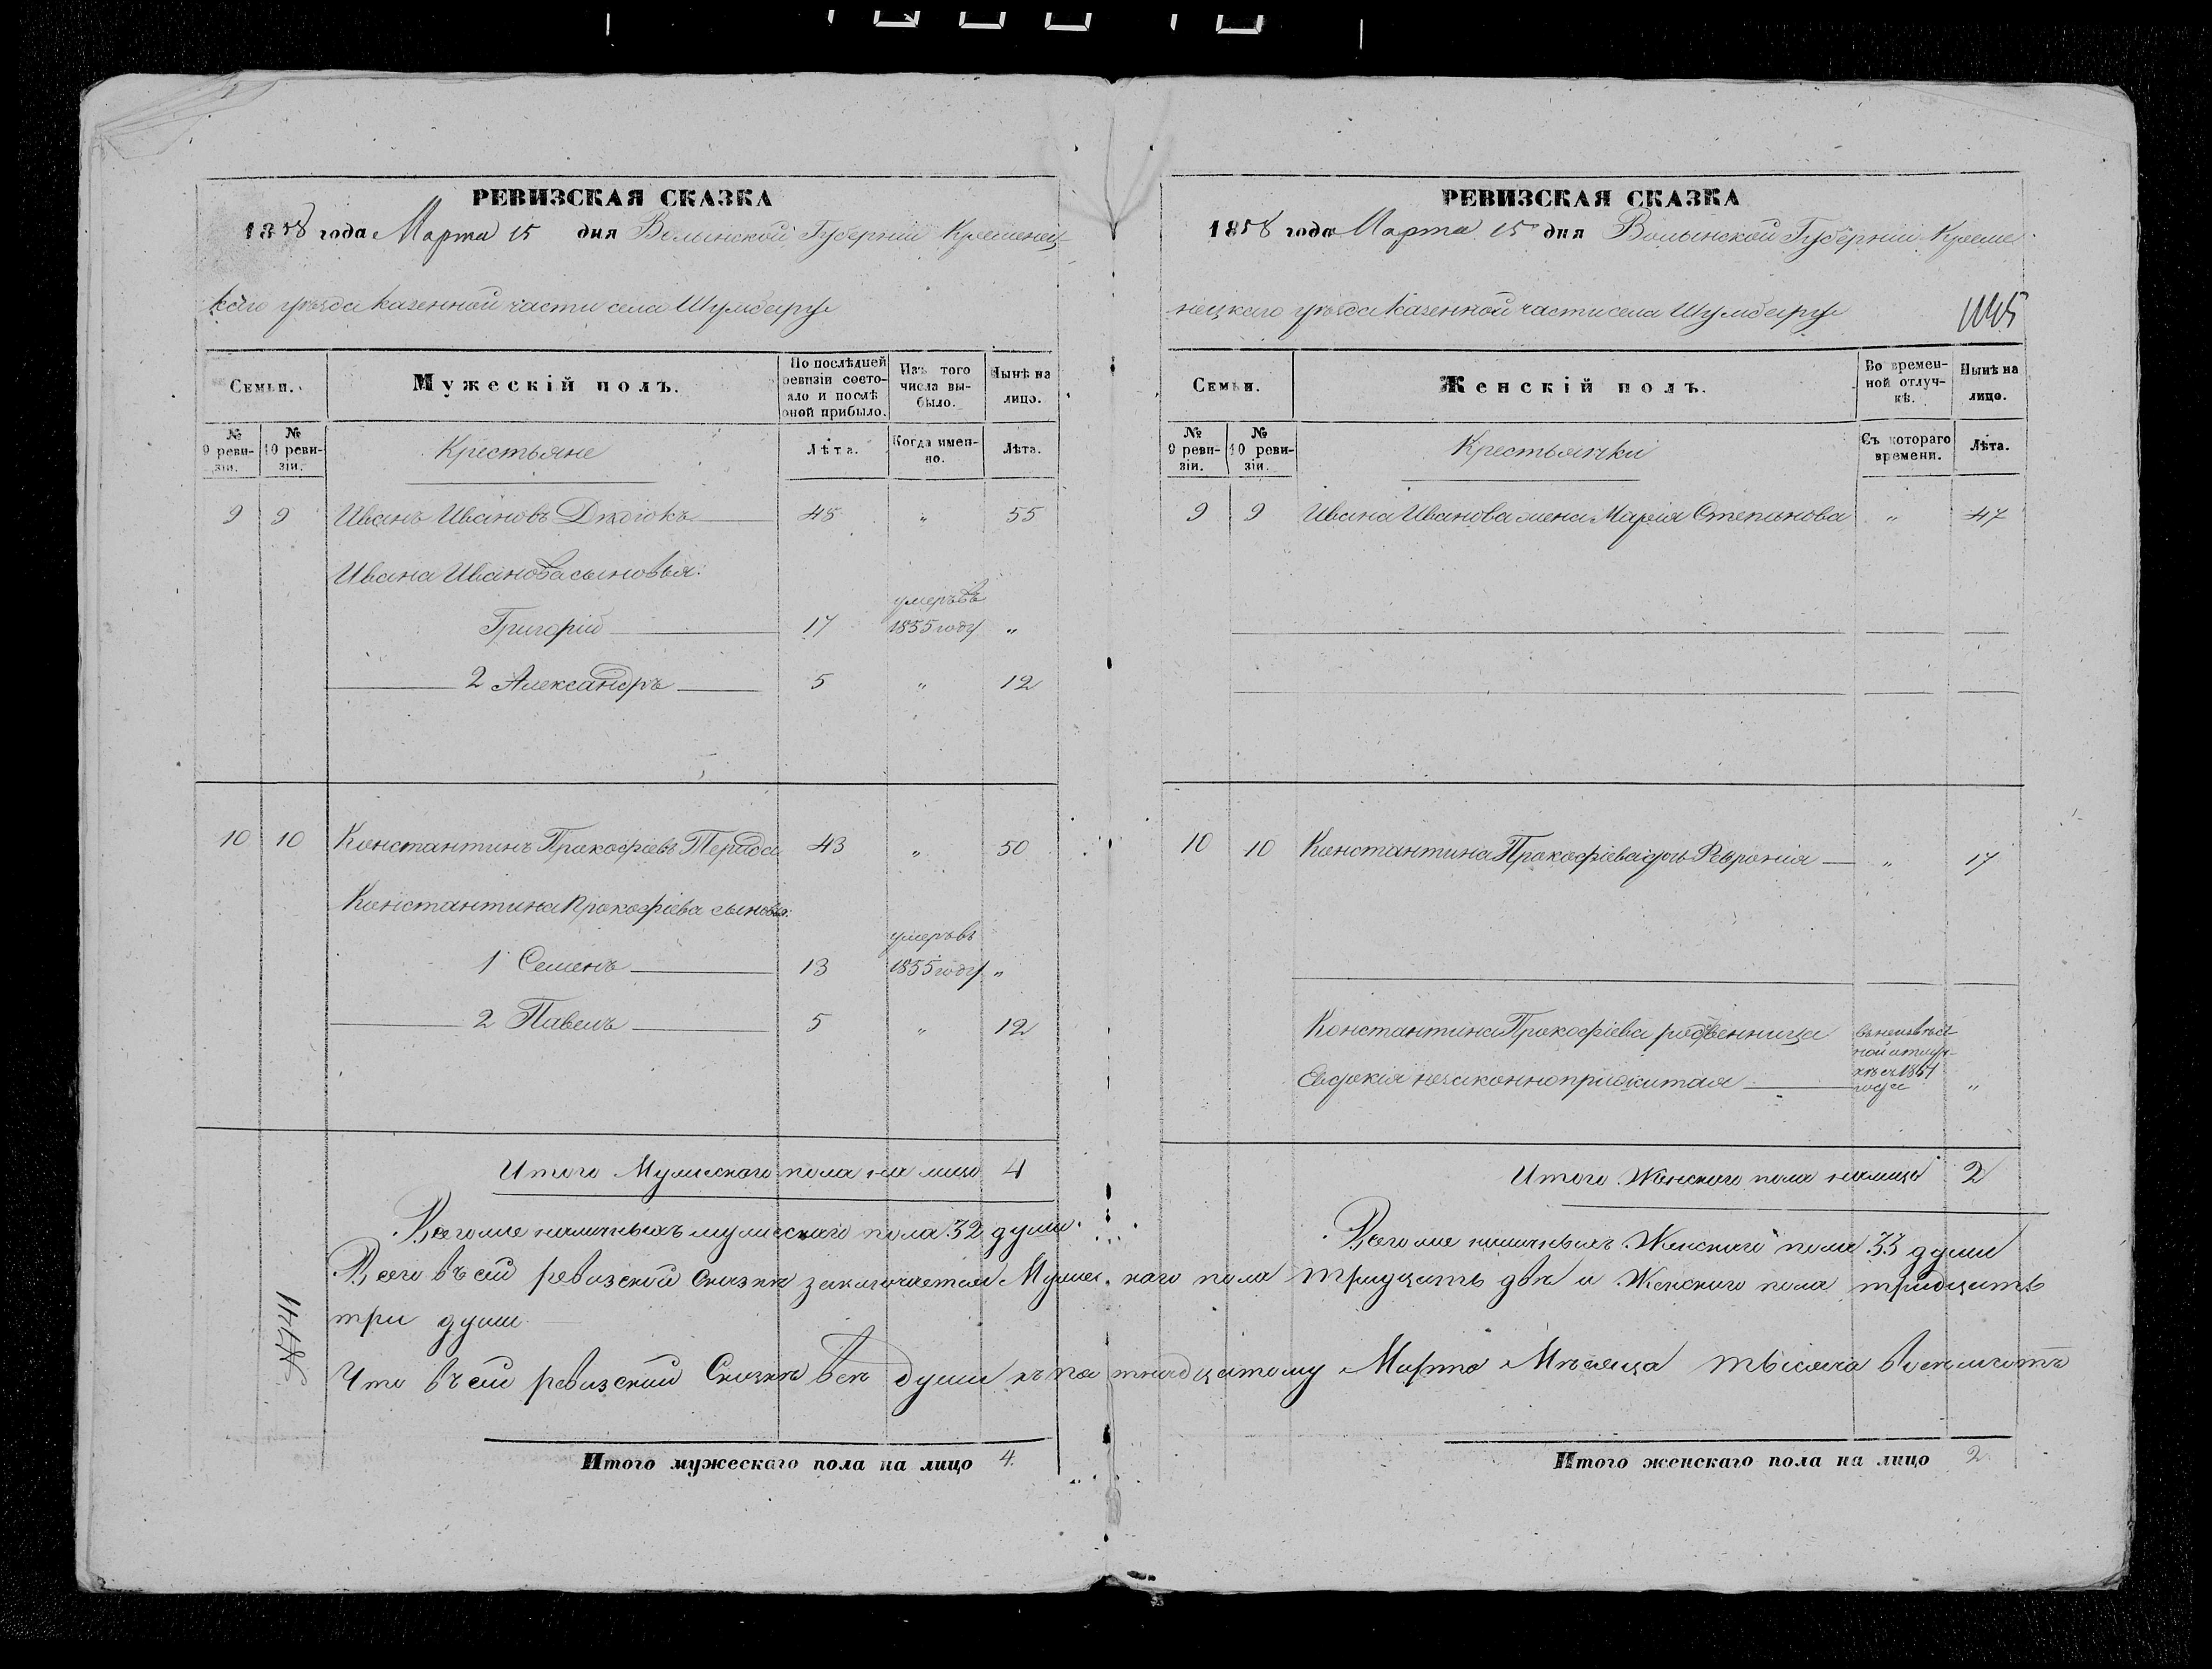 РЕВИЗСКАЯ СКАЗКА
1858 года Марта 15 дня Волынской Губерніи Кременец-
каго уѣзда казенной части села Шумбару
Семьи.
Мужескій полъ.
По послѣдней ревизіи состояло и послѣ оной прибыло.
Изъ того числа выбыло.
Нынѣ на лицо.
№ 9 ревизіи.
№ 10 ревизіи.
Крестьяне
Лѣта.
Когда именно.
Лѣта.
9 9 Иванъ Ивановъ Дидюкъ 45 „ 55
Ивана Иванова сыновья:
умеръ въ
Григорій 17 1855 году „
2 Александръ 5 „ 12
10 10 Константинъ Прокофіевъ 43 „ 50
Константина Прокофіева сыновья:
умеръ въ
1 Семенъ 13 1855 году „
2 Павелъ 5 „ 12
Итого Мужескаго пола на лицо 4
Всего же наличныхъ мужескаго пола 32 души.
Всего въ сей ревизской сказкѣ заключается Мужескаго пола тридцать двѣ и Женскаго пола тридцать
три души
Что въ сей ревизской Сказкѣ всѣ души къ пятнадцатому Марта Мѣсяца тысяча восемьсотъ
Итого мужескаго пола на лицо 4.
РЕВИЗСКАЯ СКАЗКА
1858 года Марта 15 дня Волынской Губерніи Креме
нецкаго уѣзда казенной части села Шумбару
Семьи.
Женскій полъ.
Во временной отлучкѣ.
Нынѣ на лицо.
№ 9 ревизіи.
№ 10 ревизіи.
Крестьянки
Съ котораго времени.
Лѣта.
9 9 Ивана Иванова жена Марія Степанова „ 47
10 10 Константина Прокофіева дочь Февронія „ 17
Константина Прокофіева родственница въ неизвѣст-
ной отлуч-
Евдокія незаконноприжитая кѣ съ 1851
года „
Итого Женскаго пола на лицо 2
Всего же наличныхъ Женскаго пола 33 души
Итого женскаго пола на лицо 2